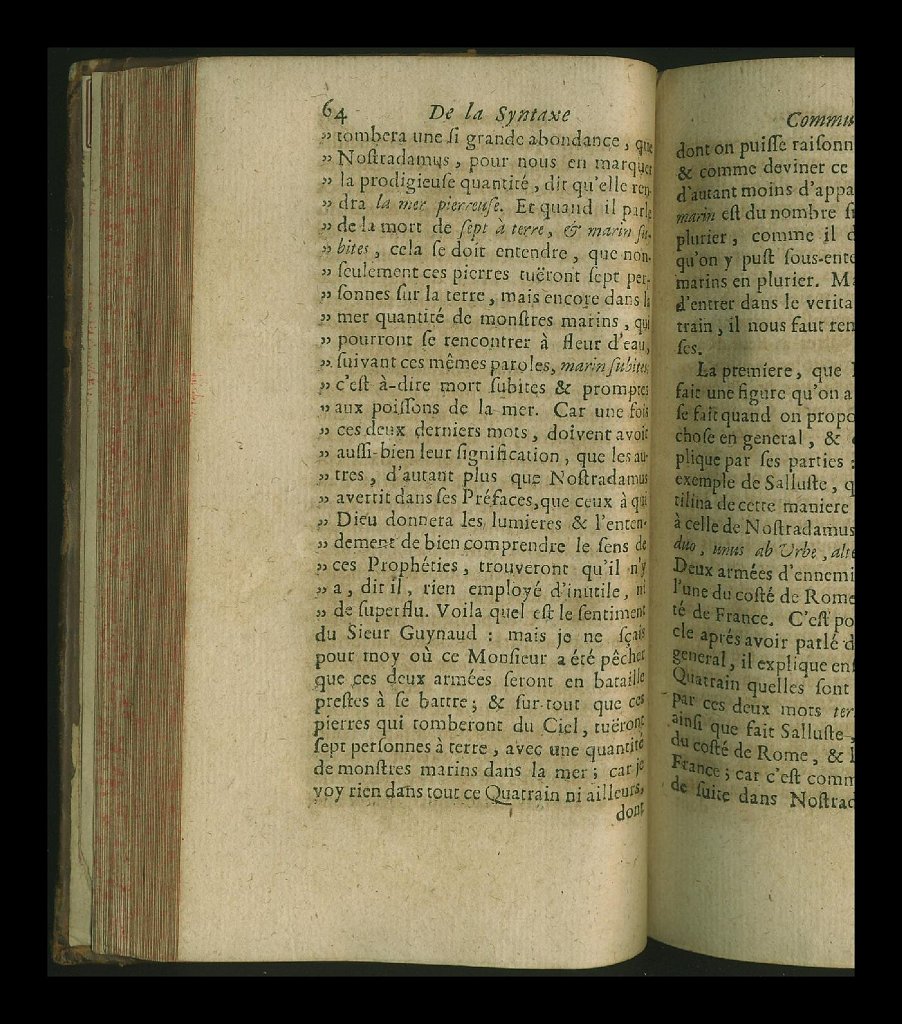 64 De la Syntaxe
„ tombera une ſi grande abondance, que
„ Noſtradamus, pour nous en marquer
„ la prodigieuſe quantité, dit qu'elle ren-
„ dra la mer pierreuſe. Et quand il parle
„ de la mort de ſept à terre, & marin ſu-
„ bites, cela ſe doit entendre, que non-
„ ſeulement ces pierres tuëront ſept per-
„ ſonnes ſur la terre, mais encore dans la
„ mer quantité de monſtres marins, qui
„ pourront ſe rencontrer à fleur d'eau,
„ ſuivant ces mêmes paroles, marin ſubites,
„ c'eſt à-dire mort ſubites & promptes
„ aux poiſſons de la mer. Car une fois
„ ces deux derniers mots, doivent avoir
„ auſſi-bien leur ſignification, que les au-
„ tres, d'autant plus que Noſtradamus
„ avertit dans ſes Préfaces, que ceux à qui
„ Dieu donnera les lumieres & l'enten-
„ dement de bien comprendre le ſens de
„ ces Prophéties, trouveront qu'il n'y
„ a, dit il, rien employé d'inutile, ni
„ de ſuperflu. Voila quel eſt le ſentiment
du Sieur Guynaud : mais je ne ſçais
pour moy où ce Monſieur a été pêcher
que ces deux armées ſeront en bataille
preſtes à ſe battre; & ſur-tout que ces
pierres qui tomberont du Ciel, tuëront
ſept perſonnes à terre, avec une quantité
de monſtres marins dans la mer; car je
voy rien dans tout ce Quatrain ni ailleurs,
dont
Commu
dont on puiſſe raiſonn
& comme deviner ce
d'autant moins d'appa
marin eſt du nombre ſi
plurier, comme il d
qu'on y puſt ſous-ente
marins en plurier. Ma
d'entrer dans le verita
train, il nous faut ren
ſes.
La premiere, que
fait une figure qu'on a
ſe fait quand on propo
choſe en general, &
plique par ſes parties :
exemple de Salluſte, q
tilina de cette maniere
à celle de Noſtradamus
duo, unus ab Urbe, alte
Deux armées d'ennemi
l'une du coſté de Rome
té de France. C'eſt po
cle aprés avoir parlé d
general, il explique enſ
Quatrain quelles ſont
par ces deux mots ter
ainſi que fait Salluſte,
du coſté de Rome, & l
France; car c'eſt comm
de ſuite dans Noſtrad